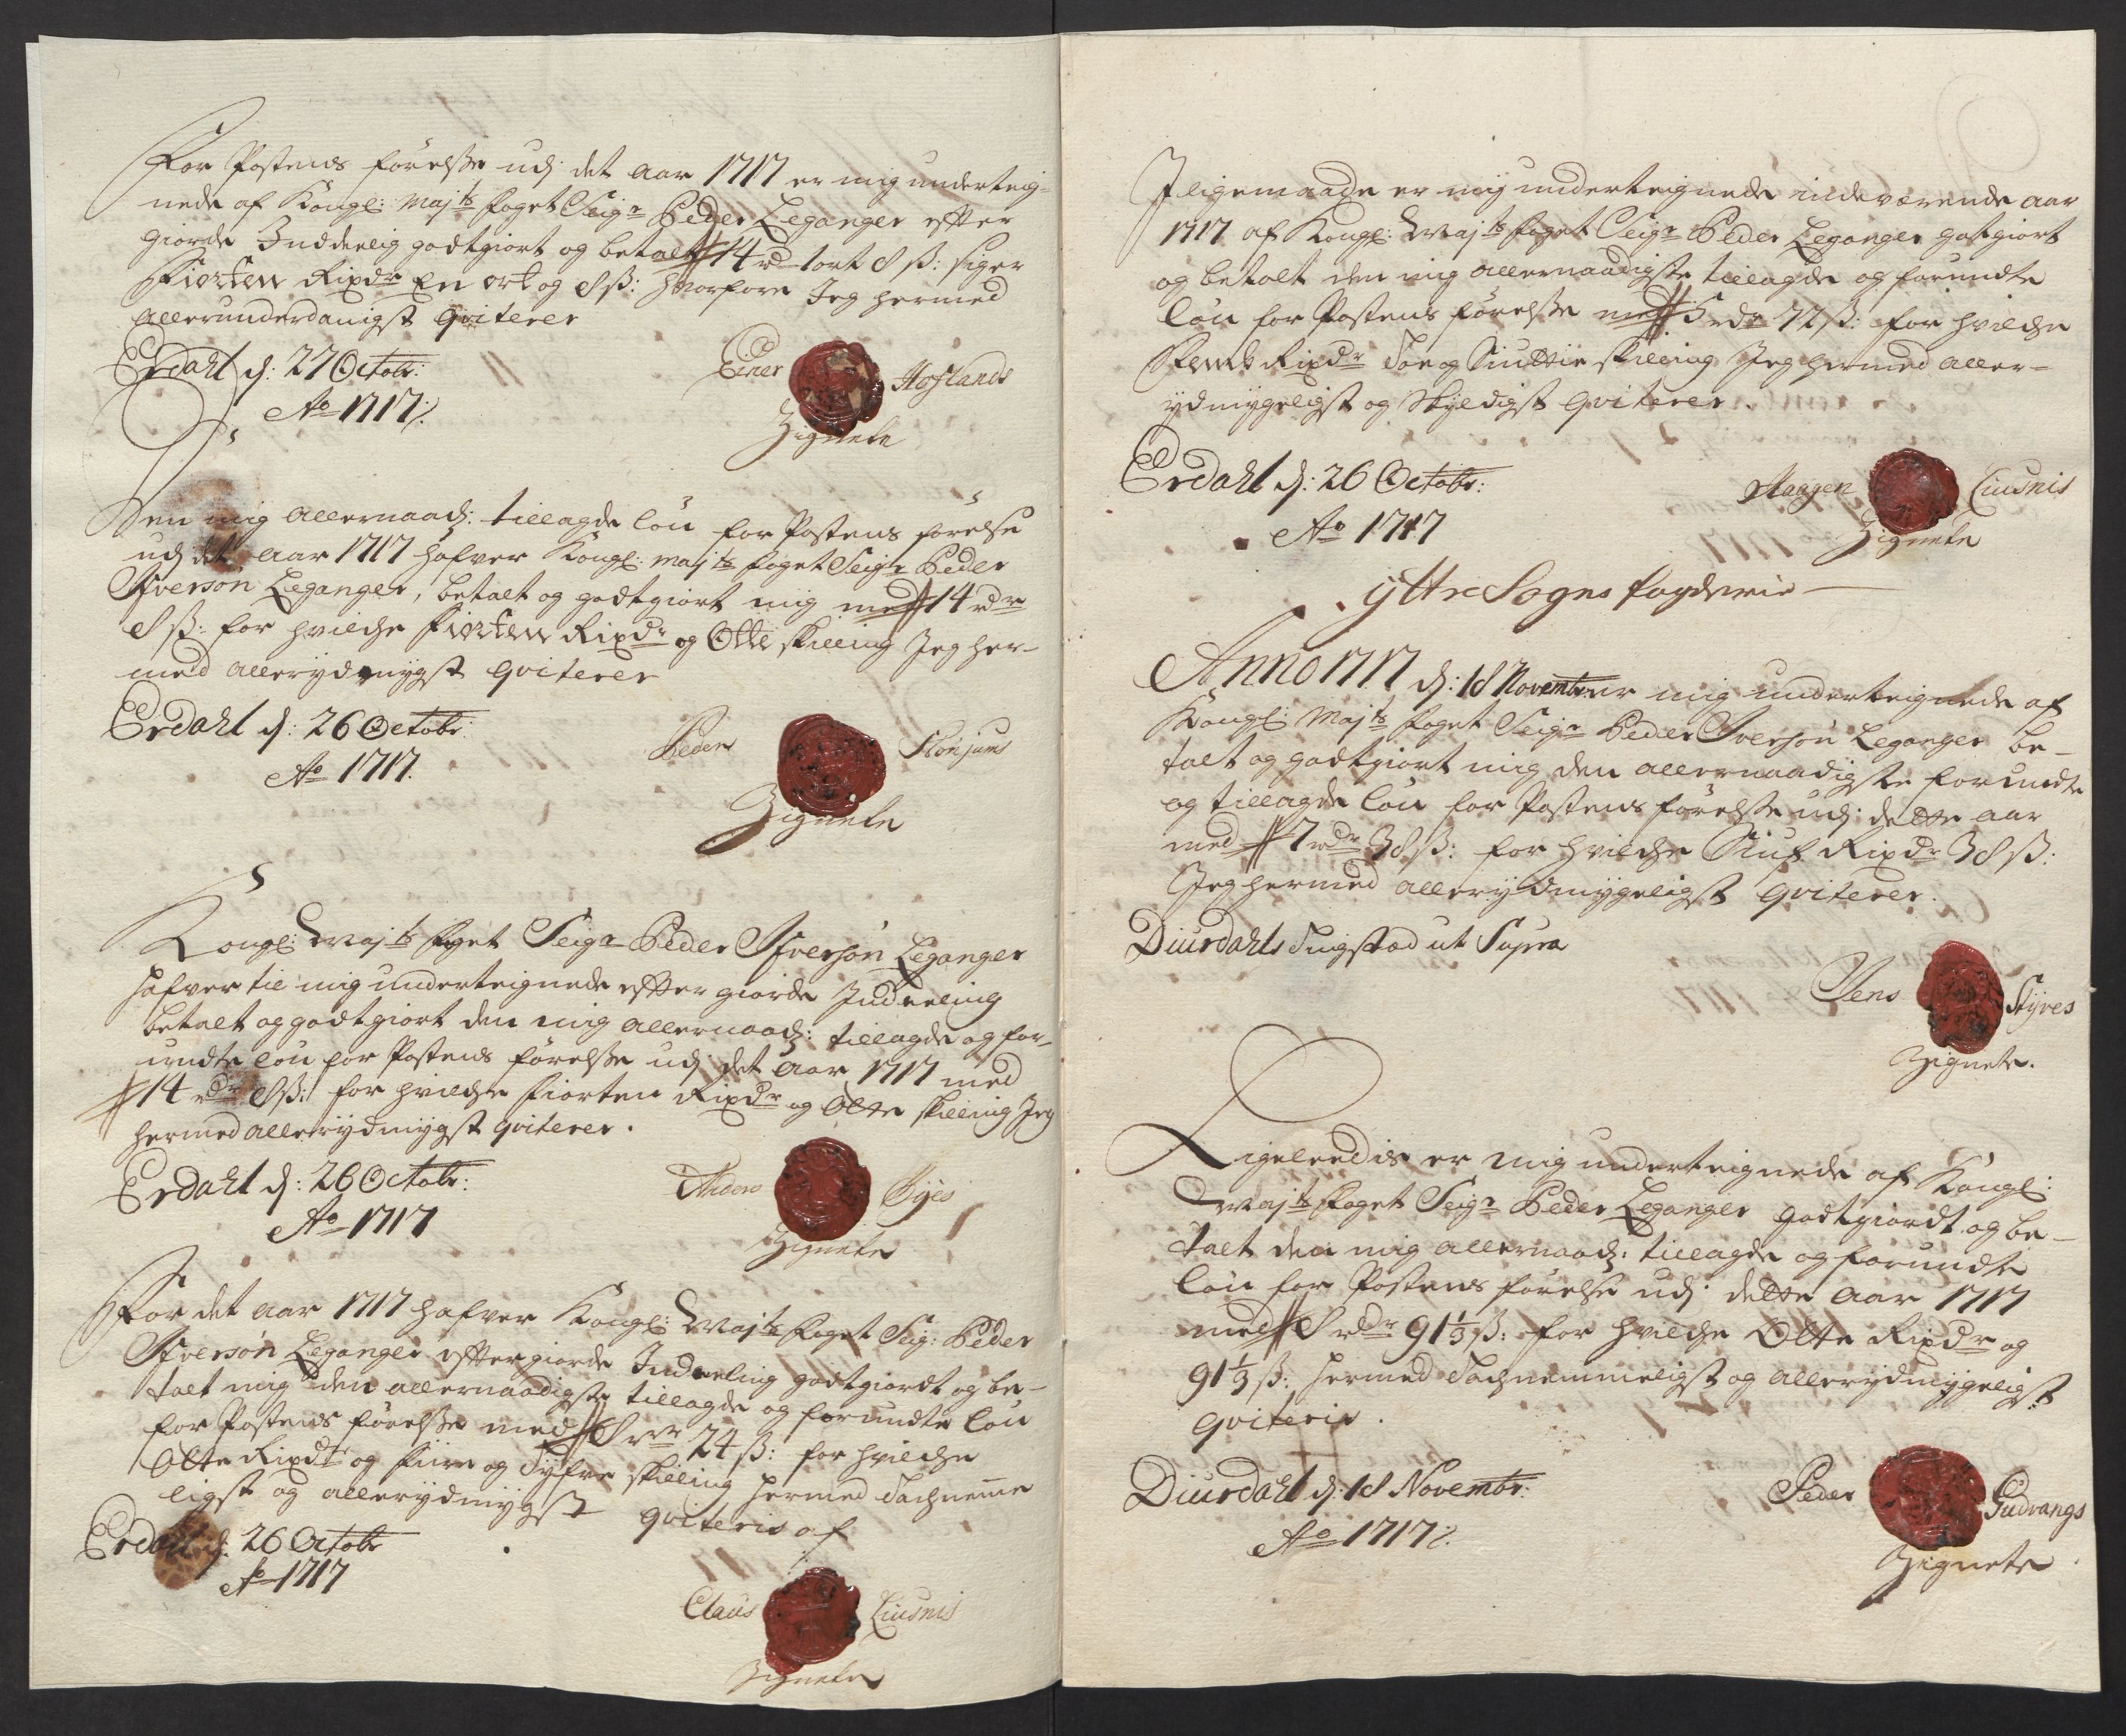 For Postensförelsse udj det Aar 1717 er mig underteig-
nede af Kongl: Maj:ts foget Seigr Peder Leganger effter
giorde Inddeelig godtgiort og betalt 14 rd 1 ort 8 ß: siger
Fiorten Rixdr En ort og 8 ß: hvorfore Jeg hermed
allerunderdanigst qviterer
Erdahl d: 27 Octobr:
Ao 1717
Einer Hoflands
Zignete
Den mig allernaad: tillagde lön for Postens förelse
udj det aar 1717 hafver Kongl: Maj:ts foget Seigr Peder
Iverson Leganger, betalt og godtgiort mig med 14 rdr
8 ß: for hvilche Fiorten Rixdr og Otte skilling Jeg her-
med allerydmygst qviterer
Erdahl d: 26 Octobr:
Ao 1717.
Peders Flönjums
Zignete
Kongl: Maj:ts foget Seigr Peder Iverson Leganger
hafver til mig underteignede effter giorde Indeeling
betalt og godtgiort den mig allernaad: tillagde og for-
undte lön for Postens förelsse udj det Aar 1717 med
14 rdr 8 ß: for hvilche fiorten Rixdr og Otte skilling Jeg
hermed allerydmygst qviterer.
Erdahl d: 26 Octobr:
Ao 1717
Anders Byes
Zignete
For det aar 1717 hafver Kongl: Maj:ts foget Seig: Peder
Iverson Leganger efftergiorde Indeeling godtgiordt og be-
talt mig den allernaadigste tillagde og forundte lön
for Postens förelsse med 8 rdr 24 ß: for hvilche
Otte Rixdr og fiire og Tyfve skilling hermed tachnemme
ligst og allerydmygst qviteris af
Erdahl d. 26 Octobr
Ao 1717
Claus Liusnis
Zignete
Iligemaade er mig underteignede indeværende aar
1717 af Kongl: Maj:ts foget Seigr Peder Leganger gotgiort
og betalt den mig allernaadigste tillagde og forundte
lön for Postens förelsse med 5 rdr 72 ß: for hvilche
Femb Rixdr Toe og Siuttie skilling Jeg hermed aller-
ydmygeligst og skyldigst qviterer.
Erdahl d: 26 Octobr:
Ao 1717
Haagen Liusnis
Zignete
yttre Sogns fogderie
Anno 1717 d: 18 Novembr: er mig underteignede af
Kongl: Maj:ts foget Seigr Peder Iverson Leganger be-
talt og godtgiort mig den allernaadigste forundte
og tillagde lön for Postens förelsse udj dette aar
med 7 rdr 38 ß: for hvilche Siuf Rixdr 38 ß:
Jeg hermed allerydmygeligst qviterer.
Diurdahls Tingsted ut Supra
Jens Styves
Zignete.
Ligeleedis er mig underteignede af Kongl:
Maj:ts foget Seigr Peder Leganger godtgiordt og be-
talt den mig allernaad: tillagde og forundte
lön for Postens förelse udj dette Aar 1717
med 8 rdr 91 1/3 ß: for hvilche Otte Rixdr og
91 1/3 ß: hermed Tachnemmeligst og allerydmygeligst
qviteris.
Diurdahl d: 18 Novembr:
Ao 1717
Peder Gudvangs
Zignete